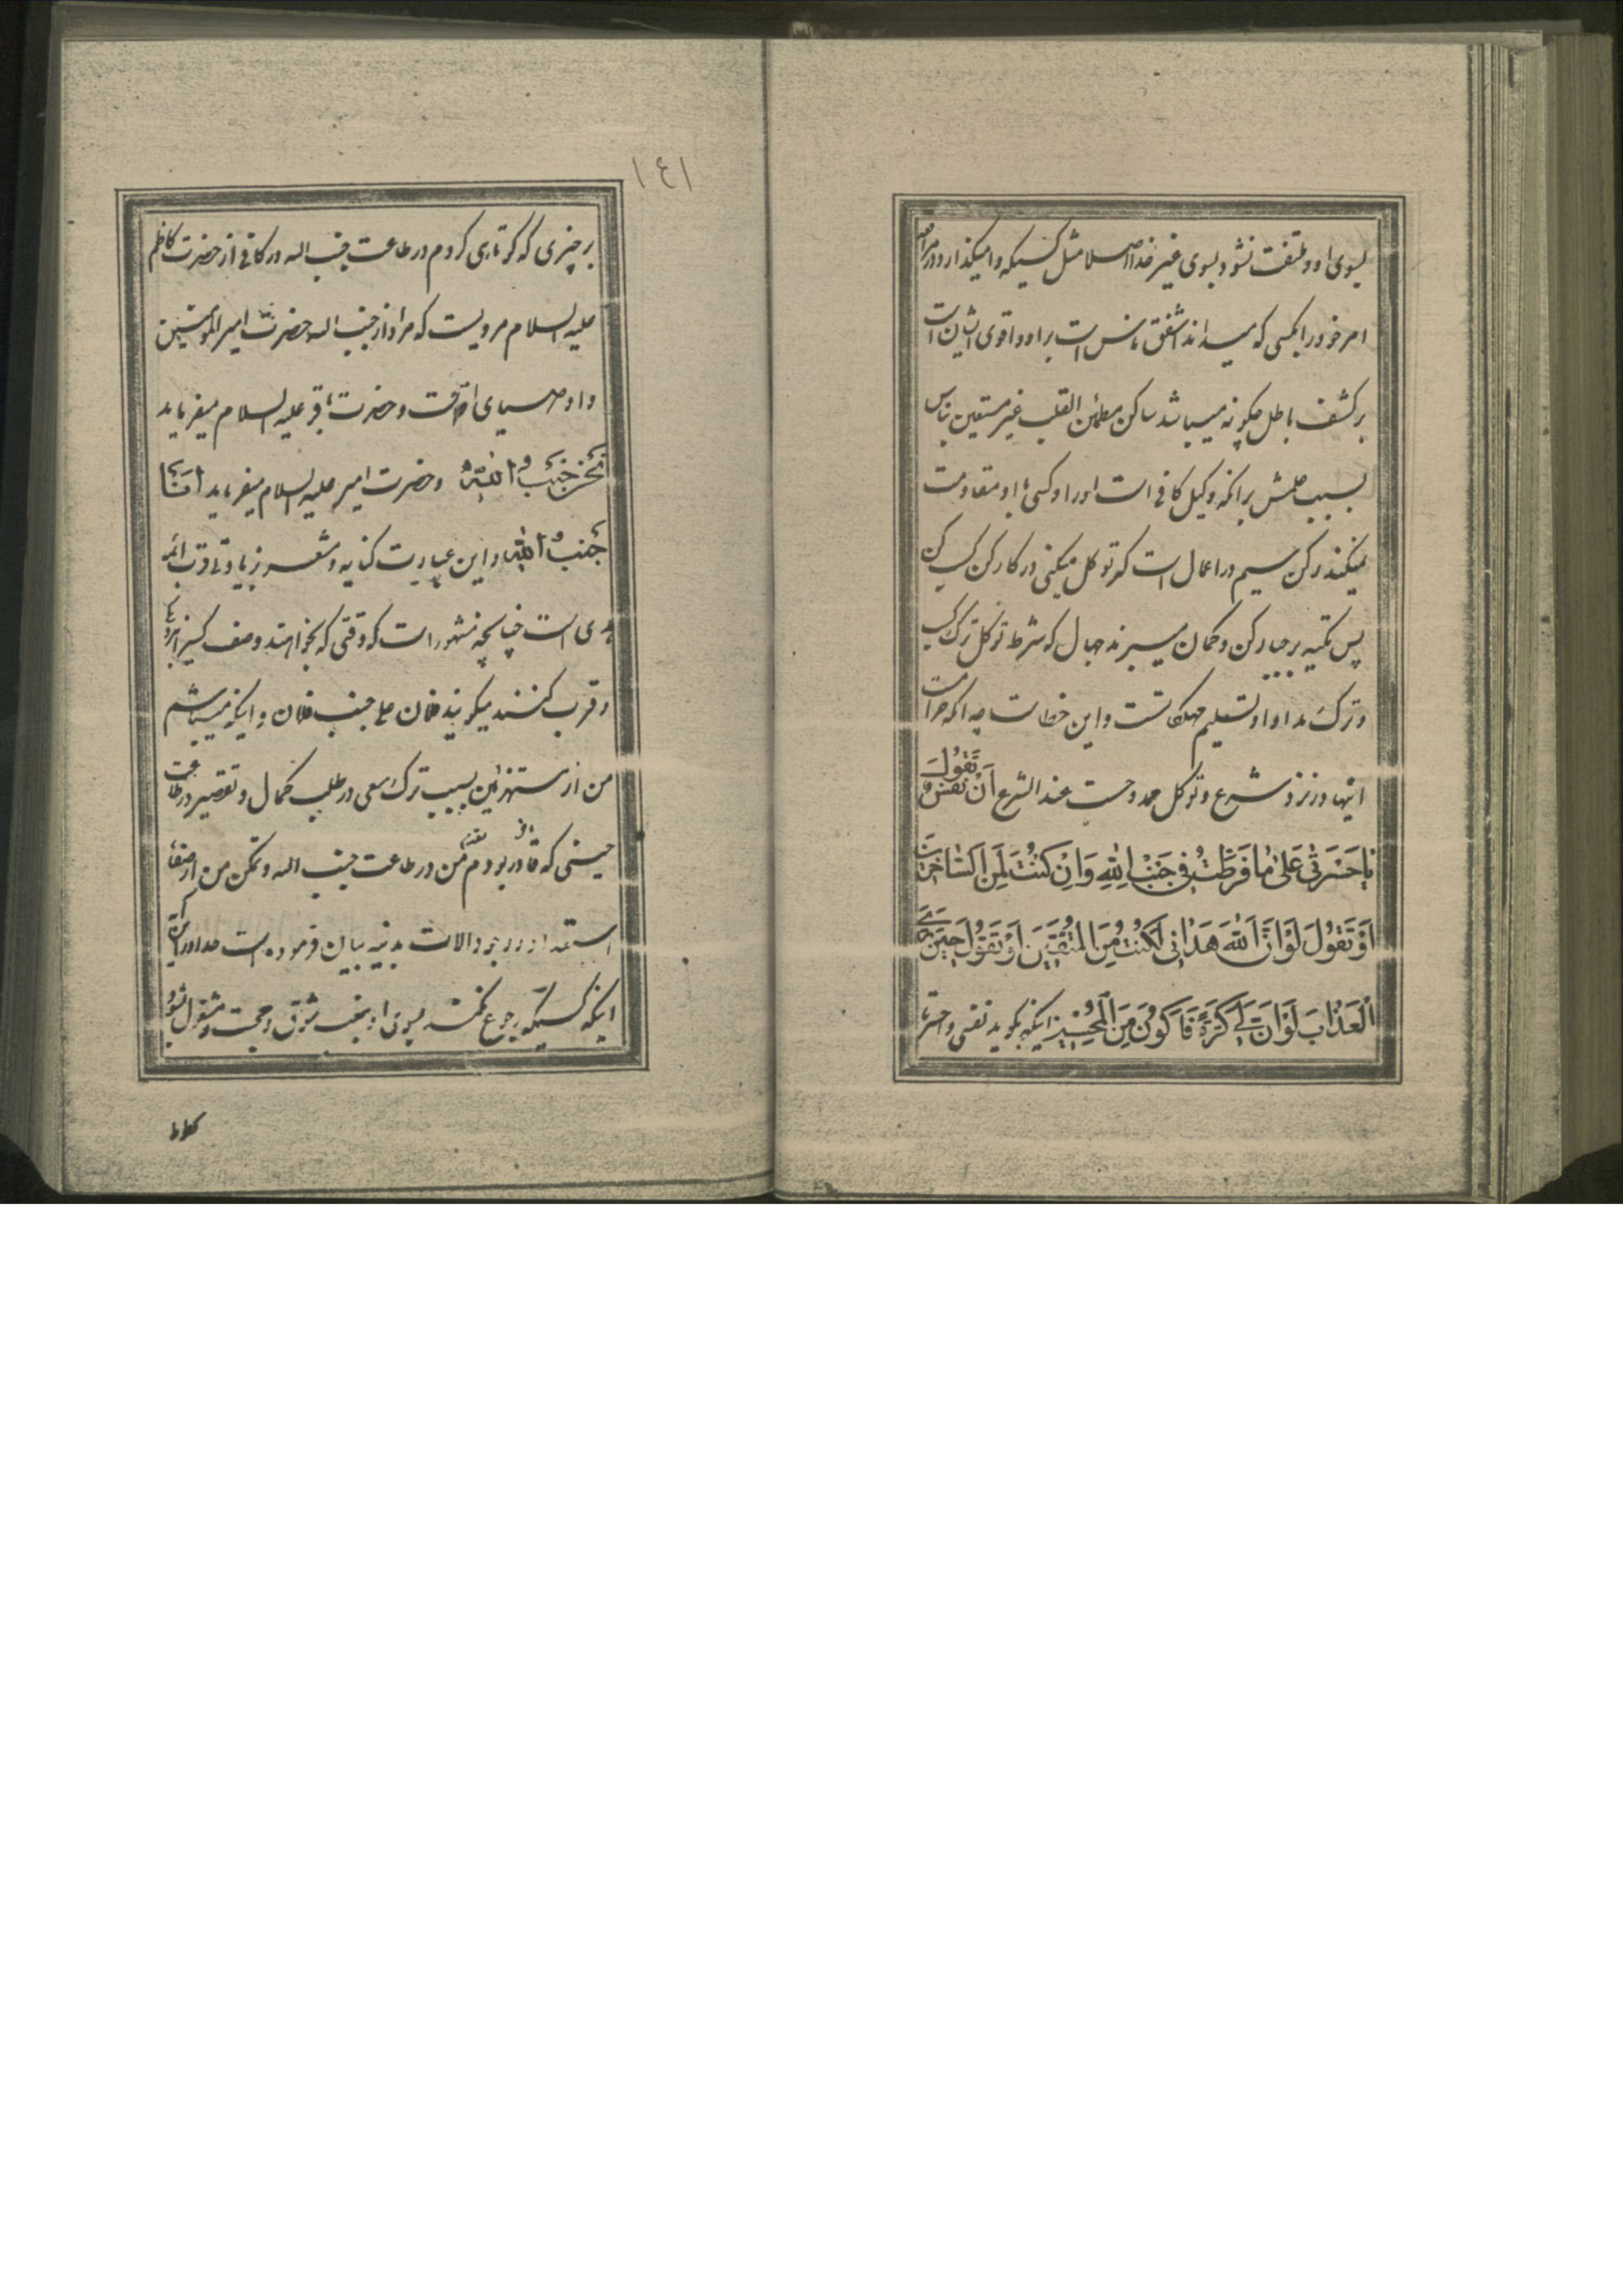 بسوی او و ملتفت نشود بسوی غیر خدا اصلا مثل کسیکه وامیگذارد در امر
امر خود را بکسی که میداند اشفق ناس است بر او و اقوی ایشان است
بر کشف باطل چگونه میباشد ساکن مطمئن القلب غیر مستعین بناس
بسبب علمش برانکه وکیل کافی است او را و کسی با او مقاومت
نمیکند رکن سیم در اعمال است که توکل میکنی در کار کن کسب کن
پس تکیه بر جبار کن و گمان میبرند جهال که شرط توکل ترک کسب
و ترک مداوا و تسلیم مهلکاتست و این خطاست چه انکه حرامست
اینها در نزد شرع و توکل ممدوحست عند الشرع اَنْ تَقُولَ نَفْسٌ
یاحَسْرَتی عَلی مافَرَّطْتُ فی جَنْبِ اللهِ وَاِنْ کُنْتُ لَمِنَ السّاخِرینَ
اَوْ تَقُولَ لَوْ اَنَّ اللهَ هَدانی لَکُنْتُ مِنَ المُتَّقینَ اَوْ تَقُولَ حینَ تَرَی
الْعَذابَ لَوْ اَنَّ لی کَرَّةً فَاَکُونَ مِنَ الْمُحْسِنینَ اینکه بگوید نفسی واحسرتا
١٤١
بر چیزی که کوتاهی کردم در طاعت جنب اله در کافی از حضرت کاظم
علیه السلام مرویست که مراد از جنب اله حضرت امیر المؤمنین
و اوصیای اوست و حضرت باقر علیه السلام میفرماید
نَحْنُ جَنْبُ اللهِ و حضرت امیر علیه السلام میفرماید اَنَا
جَنْبُ اللهِ و این عبارت کنایه و مشعر بزیادتی قرب ائمه
هدی است چنانچه مشهور است که وقتی که بخواهند وصف کسیرا
و قرب کنند میگویند فلان علی جنب فلان و اینکه میباشم
من از مستهزئین بسبب ترک سعی در طلب کمال و تقصیر در طاعت
حینی که قادر بودم من در طاعت جنب اله و تمکن من از
استعداد و وجود الات بدنیه بیان فرموده است
اینکه کسیکه رجوع نکند بسوی او بنعت شوق و محبت و مشغول شود